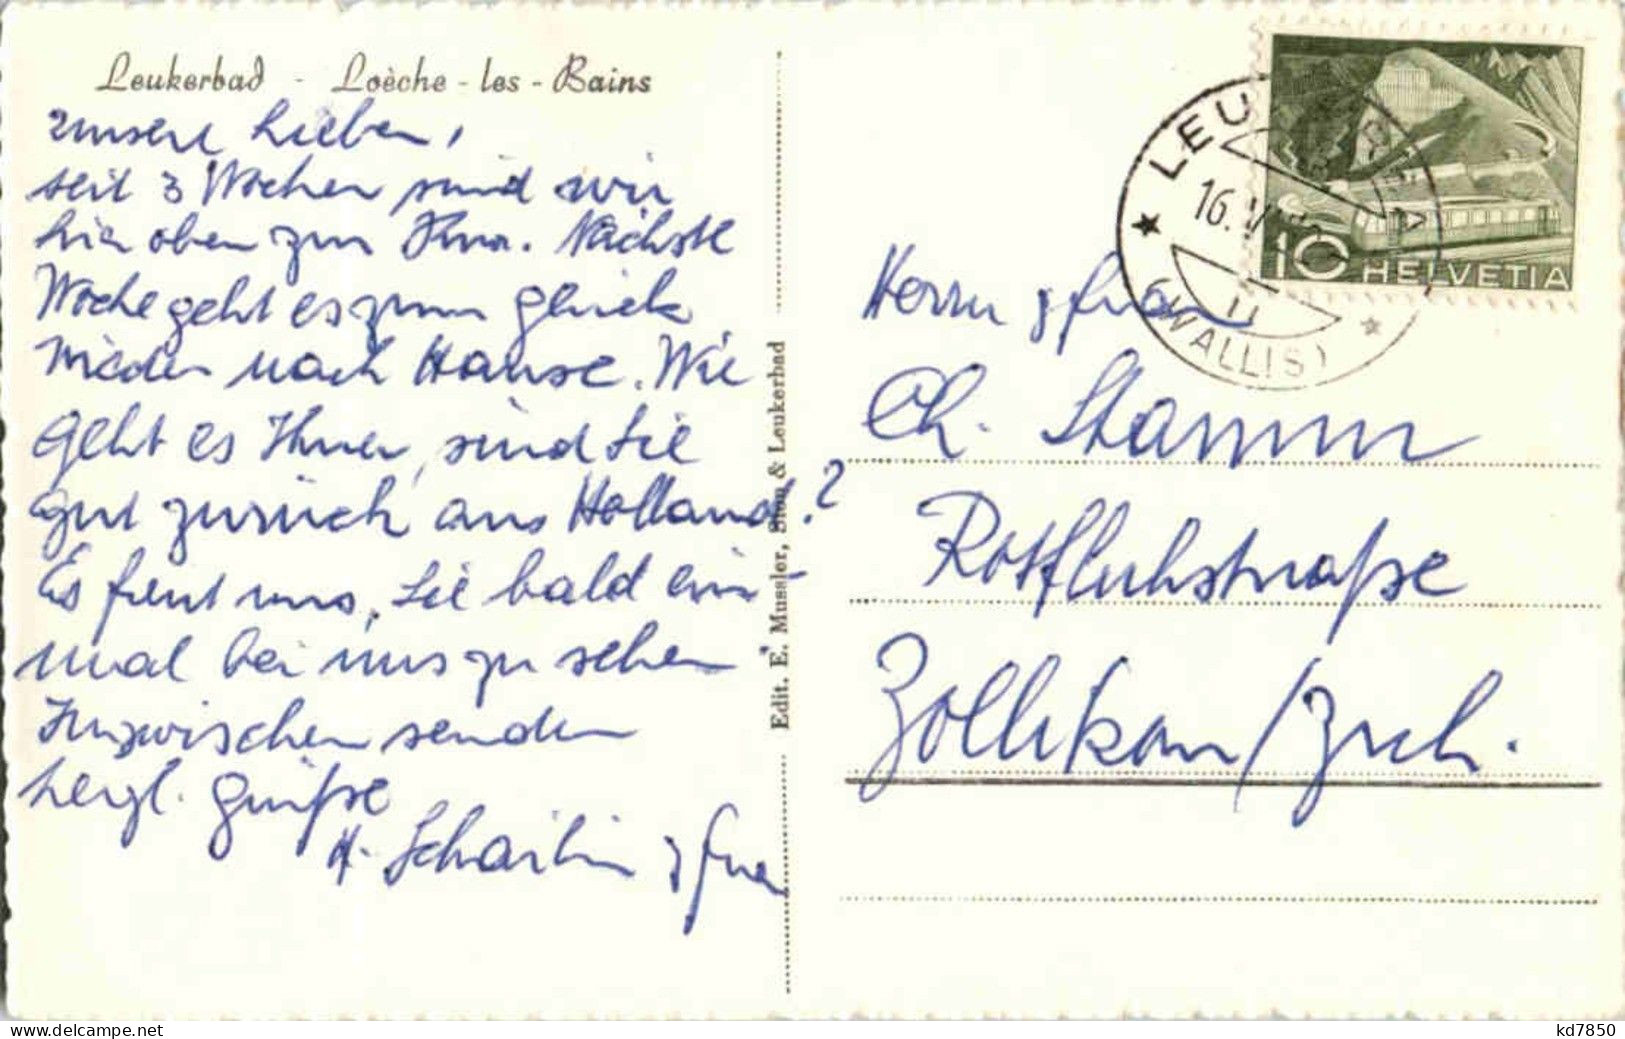 Leukerbad - Loèche-les-Bains
unsere Lieben,
seit 3 Wochen sind wir
hier oben zur Kur. Nächste
Woche geht es zum glück
wieder nach Hause. Wie
geht es Ihnen, sind Sie
gut zurück aus Holland?
Es freut uns, Sie bald ein-
mal bei uns zu sehen
Inzwischen senden
herzl. grüße
H. & Frau
Edit. E. Mussler, Sion & Leukerbad
LEUKERBAD
16.
11
(WALLIS)
10 HELVETIA
Herrn & Frau
Ch. Stamm
Rotfluhstraße
Zollikon/Zrch.
kd7850